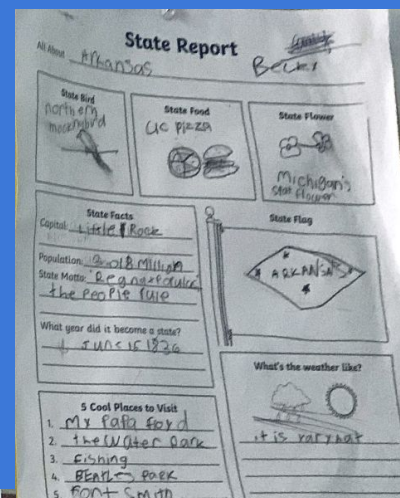 State Report
All About Arkansas
Becky
State Bird
northern
mockingbird
State Food
uc pizza
State Flower
Michigan's
stat flower
State Facts
Capital: Little Rock
Population: 3.018 Million
State Motto: "Regnat Populus"
the People rule
What year did it become a state?
June 15 1836
State Flag
ARKANSAS
What's the weather like?
it is vary hat
5 Cool Places to Visit
1. My Papa floyd
2. the water park
3. Fishing
4. Park
5. Font Smith